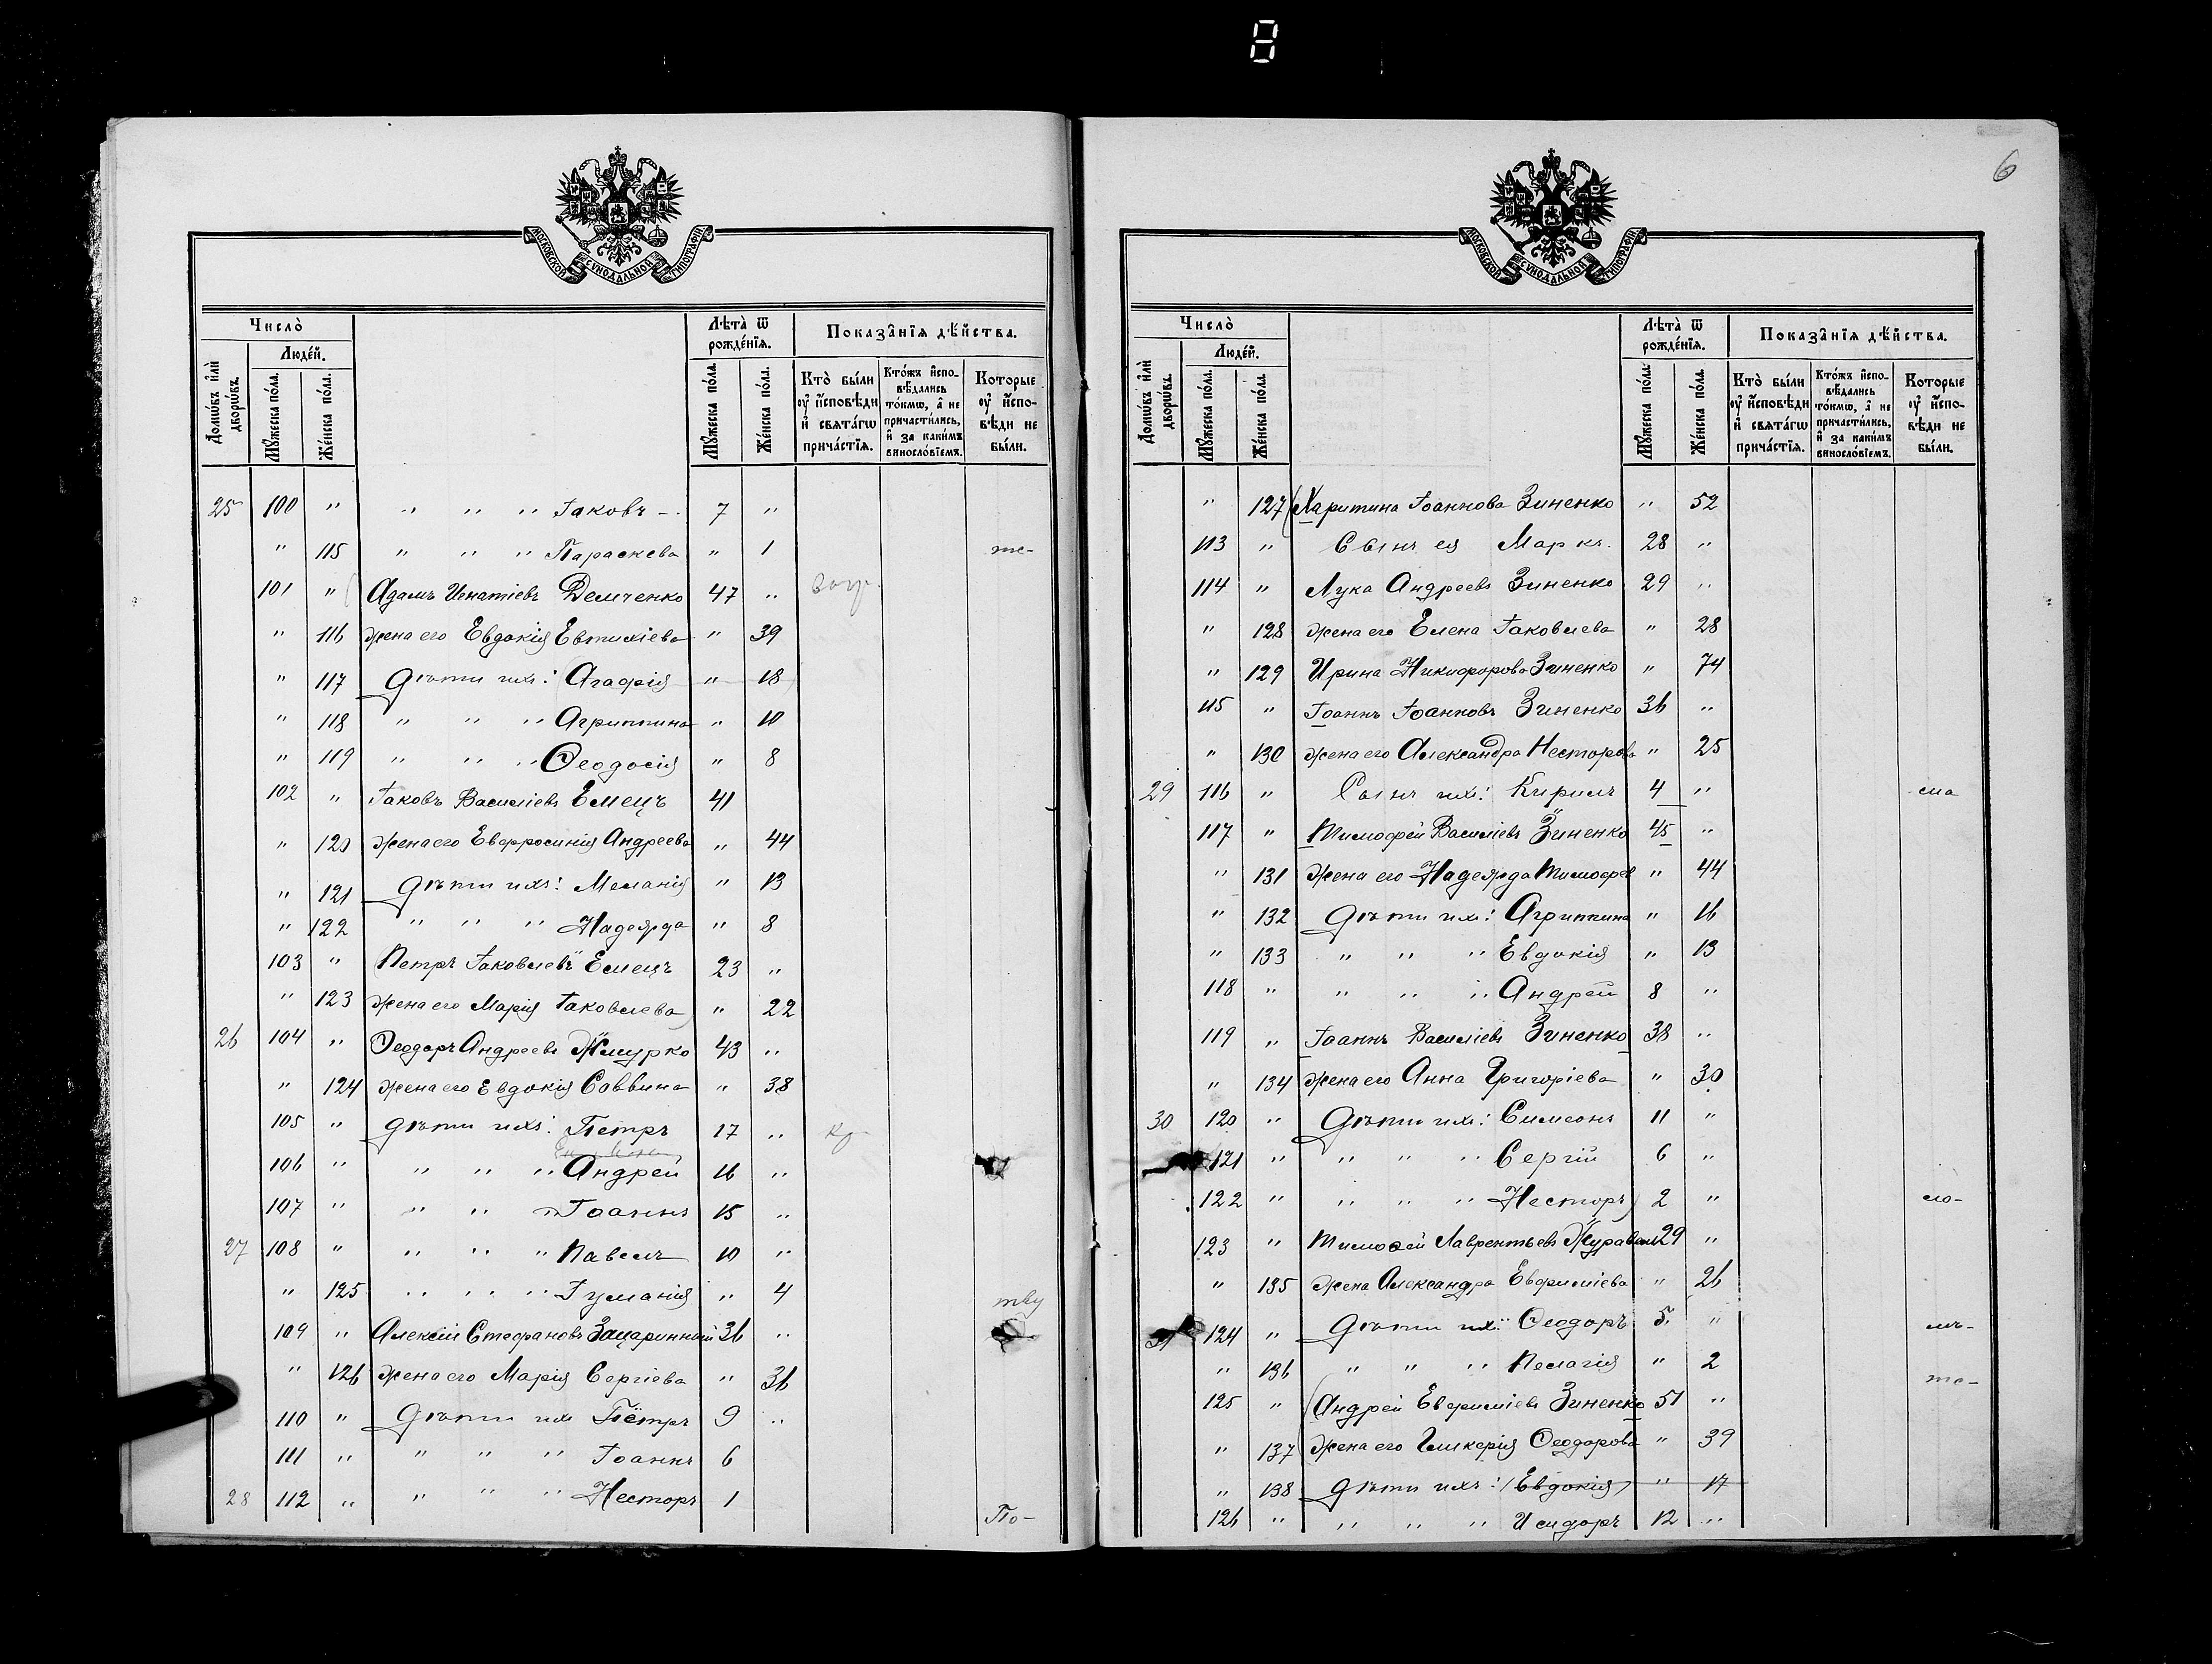 8
МОСКОВСКОЙ СѴНОДАЛЬНОЙ ТИПОГРАФІИ
Число̀
Людéй.
Домѡ́въ и҆лѝ дворѡ́въ.
Мꙋ́жеска по́ла.
Же́нска по́ла.
Лѣ́та ѿ рожде́нїя.
Мꙋ́жеска по́ла.
Же́нска по́ла.
Показа̑нїя дѣ́йства.
Кто̀ бы́ли ᲂу҆ и҆сповѣди и҆ свята́гѡ прича́стїя.
Кто́жъ и҆сповѣ́дались то́кмѡ, а҆ не причасти́лись, и҆ за каки́мъ виносло́вїемъ.
Которые ᲂу҆ и҆сповѣди не бы́ли.
25 100 " " " " Іаковъ - 7 "
" 115 " " " Параскева " 1 те-
101 " Адамъ Игнатіевъ Демченко 47 "
" 116 жена его Евдокія Евтихіева " 39
" 117 дѣти ихъ: Агафія " 18
" 118 " " " Агриппина " 10
" 119 " " " Ѳеодосія " 8
102 " Іаковъ Василіевъ Емецъ 41
" 120 жена его Евфросинія Андреева " 44
" 121 дѣти ихъ: Меланія " 13
" 122 " " " Надежда " 8
103 " Петръ Іаковлевъ Емецъ 23 "
" 123 жена его Марія Іаковлева " 22
26 104 " Ѳеодоръ Андреевъ Жмурко 43 "
" 124 жена его Евдокія Саввина " 38
105 " дѣти ихъ: Петръ 17 "
106 " " " " Андрей 16 "
107 " " " " Іоаннъ 15 "
27 108 " " " " Павелъ 10 "
" 125 " " " Іуліанія " 4 тву
109 " Алексій Стефановъ Зацаринный 36 "
" 126 жена его Марія Сергіева " 36
110 " дѣти ихъ Петръ 9 "
111 " " " " Іоаннъ 6
28 112 " " " " Несторъ 1 По-
6
МОСКОВСКОЙ СѴНОДАЛЬНОЙ ТИПОГРАФІИ
Число̀
Людéй.
Домѡ́въ и҆лѝ дворѡ́въ.
Мꙋ́жеска по́ла.
Же́нска по́ла.
Лѣ́та ѿ рожде́нїя.
Мꙋ́жеска по́ла.
Же́нска по́ла.
Показа̑нїя дѣ́йства.
Кто̀ бы́ли ᲂу҆ и҆сповѣди и҆ свята́гѡ прича́стїя.
Кто́жъ и҆сповѣ́дались то́кмѡ, а҆ не причасти́лись, и҆ за каки́мъ виносло́вїемъ.
Которые ᲂу҆ и҆сповѣди не бы́ли.
" 127 (Харитина Іоаннова Зиненко " 52
113 " Сынъ ея Маркъ. 28 "
114 " Лука Андреевъ Зиненко 29 "
" 128 жена его Елена Іаковлева " 28
" 129 Ирина Никифорова Зиненко " 74
115 " Іоаннъ Іоанновъ Зиненко 36 "
" 130 жена его Александра Несторова " 25
29 116 " Сынъ ихъ: Кирилъ 4 " сла
117 " Тимофей Василіевъ Зиненко 45 "
" 131 жена его Надежда Тимофее " 44
" 132 дѣти ихъ: Агриппина " 16
" 133 " " " Евдокія " 13
118 " " " " Андрей 8 "
119 " Іоаннъ Василіевъ Зиненко 38 "
" 134 жена его Анна Григоріева " 30
30 120 " дѣти ихъ: Симеонъ 11 "
121 " " " " Сергій 6 "
122 " " " " Несторъ) 2 " сло-
123 " Тимофей Лаврентьевъ Журавель 29 "
" 135 жена Александра Евфиміева " 26
31 124 " дѣти ихъ: Ѳеодоръ 5. "
" 136 " " " Пелагія " 2 те-
125 " (Андрей Евфиміевъ Зиненко 51 "
" 137 жена его Гликерія Ѳеодорова " 39
" 138 дѣти ихъ: (Евдокія) " 17
126 " " " " Исидоръ 12 "